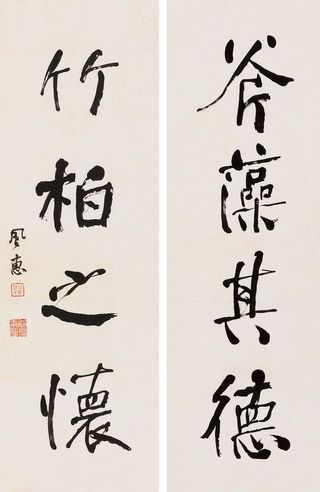 斧藻其德
竹柏之懷
風惠